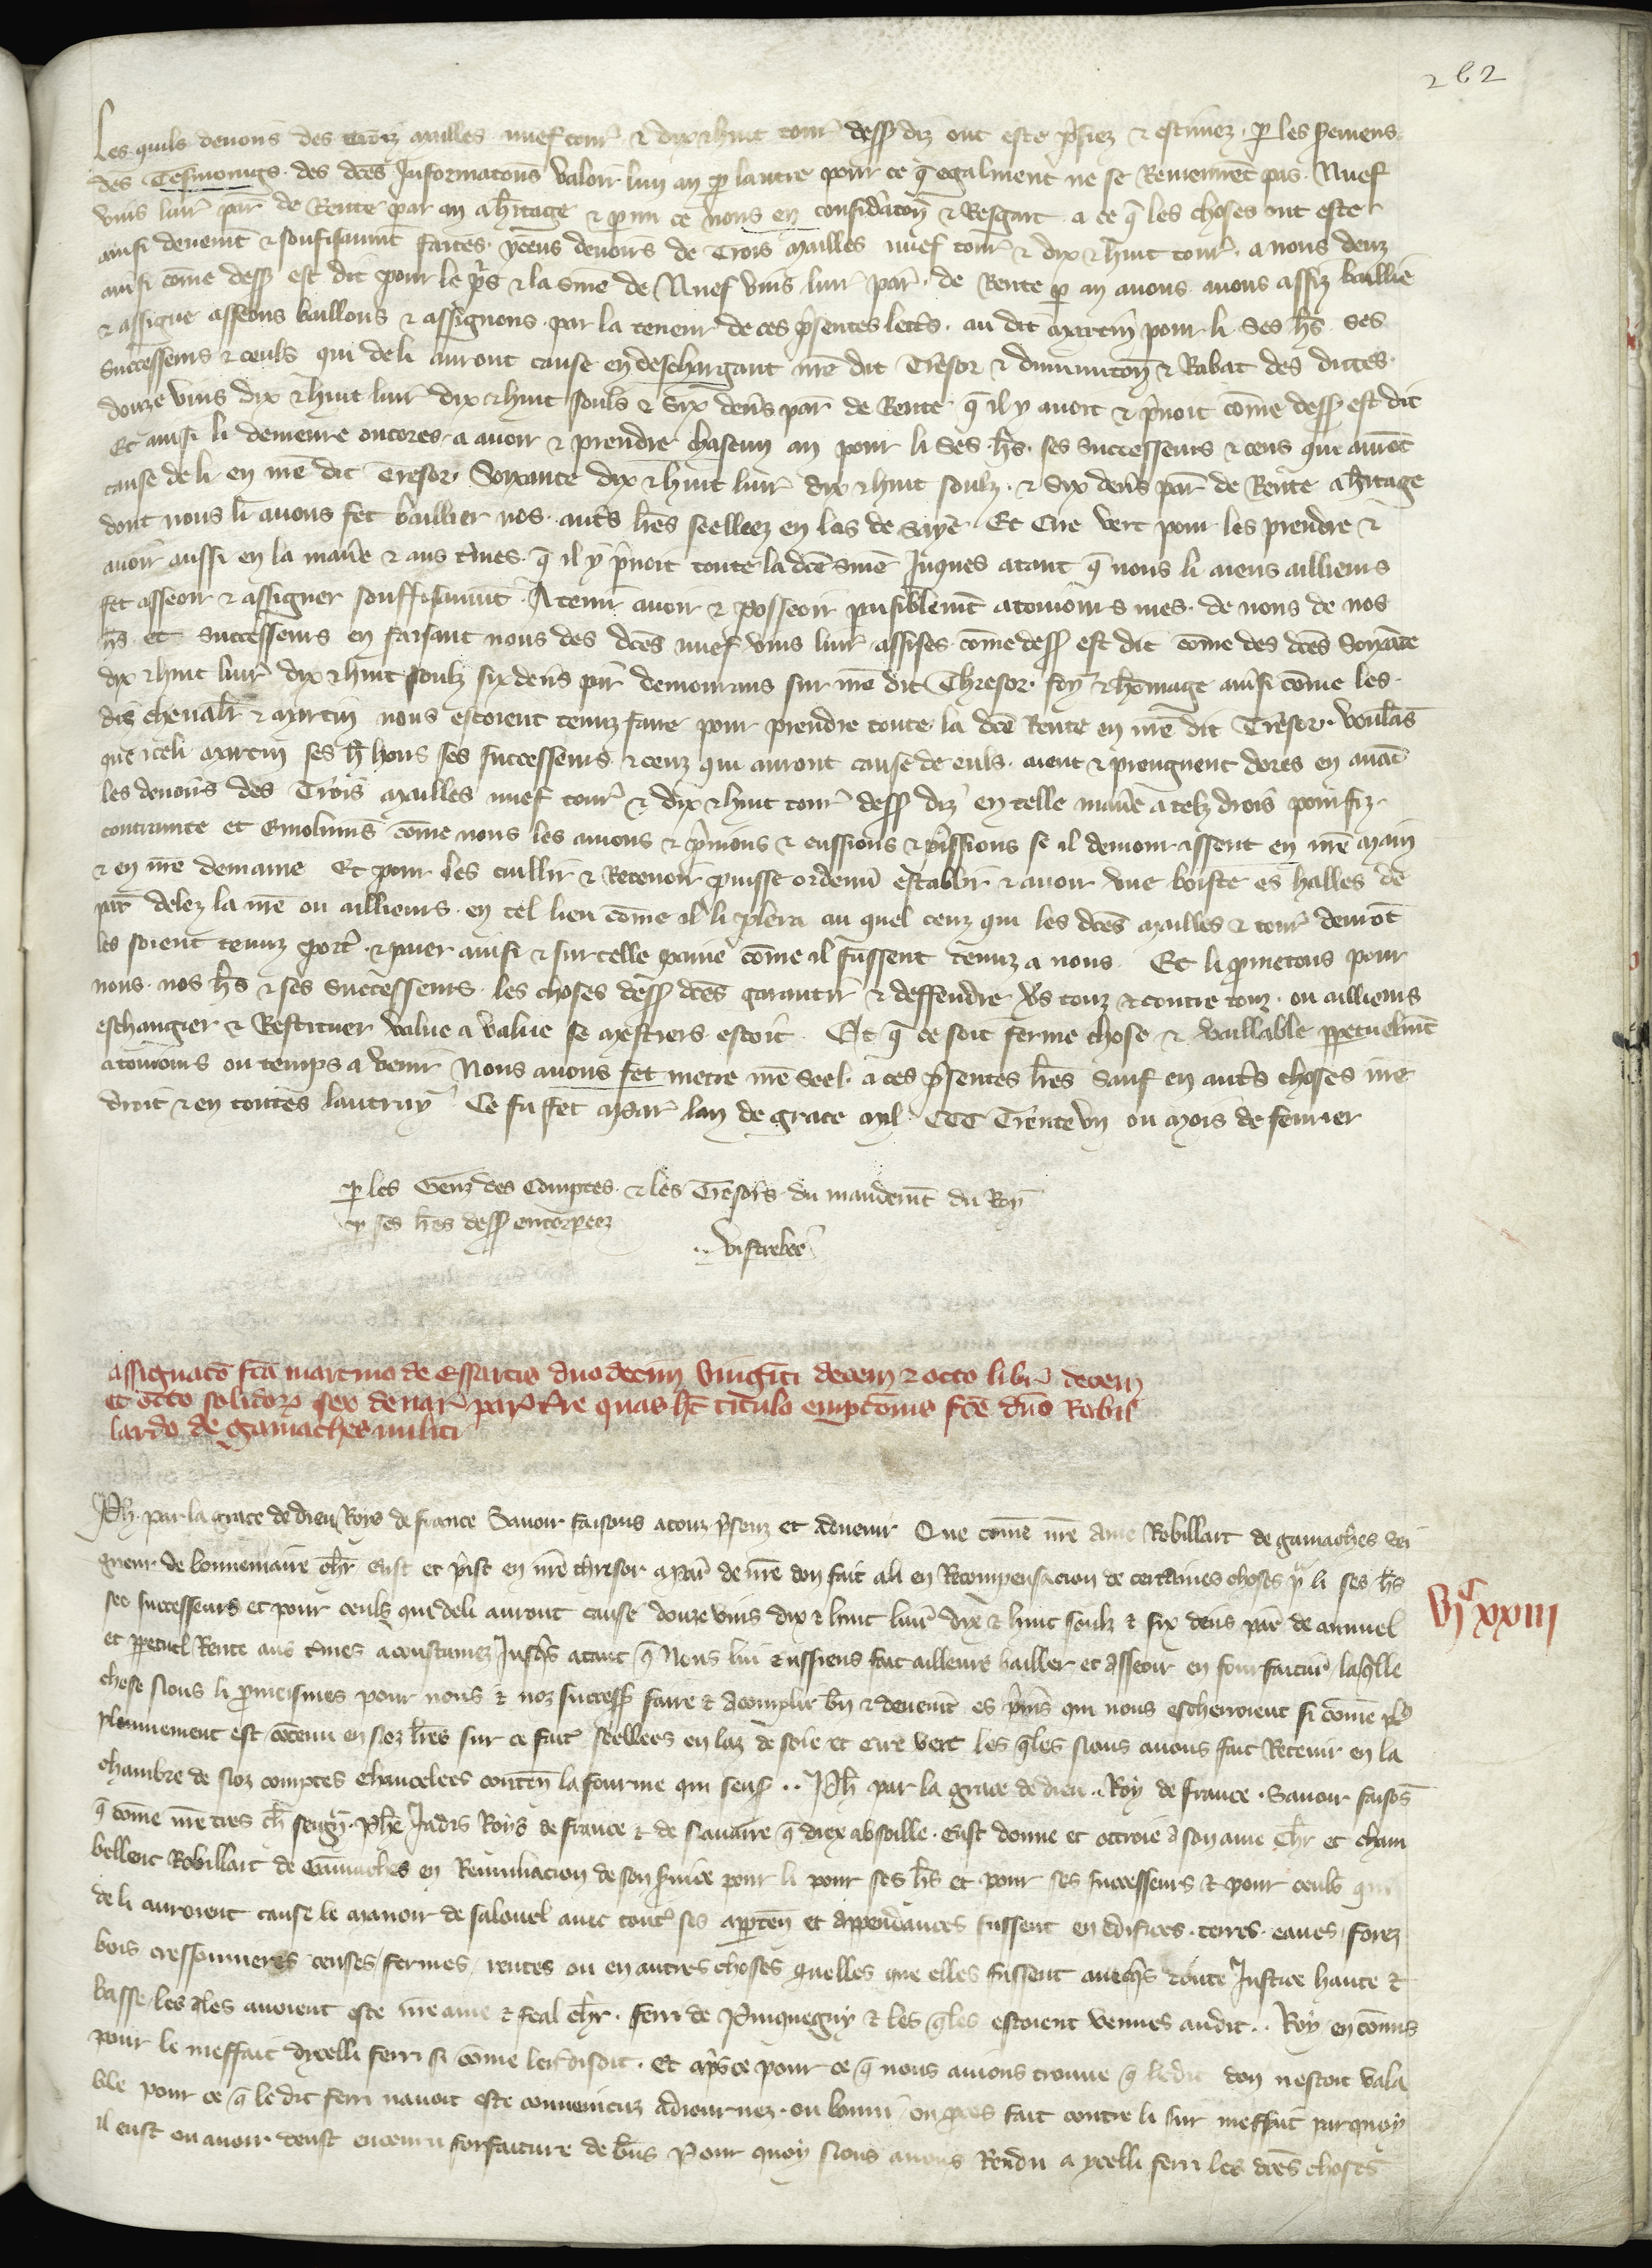 262
Les quils devons des trois mailles nuef tour̃ & dix & huit tour̃ dess⁹ diz ont este p̃siez & estimez . p les sermens
des Tesmoings . des dc̃es Informatons valoir lun an p lautre pour ce q̃ egalment ne se Reviennẽt pas . Nuef
vins livr̃ par̃ de Rente par an a h̃itage & p mi ce nous en considãtoñ & Resgart a ce q̃ les choses ont este
ainsi deuemt & souffisaumt faites . yceus devoirs de Trois mailles nuef tour̃ & dix & huit tour̃ . a nous deuz
ainsi com̃e dess⁹ est dit pour le p̃s & la som̃e de Nuef vins livr̃ par̃ . de Rente p an avons avons assiz baillie
& assigne asseons baillons & assignons . par la teneur de ces p̃sentes lectr̃s . au dit Martin pour li ses h̃s . ses
Successeurs & ceuls qui de li auront cause en deschargant nr̃e dit Tresor & diminutoñ & Rabat des dictes
douze vins dix & huit livr̃ dix & huit souls & Six dens̃ par̃ de Rente q̃ il y avoit & p̃noit com̃e dess⁹ est dit
Et ainsi li demeure encores . a avoir & prendre chascun an pour li ses h̃s . ses successeurs & ceus qui aurõt
cause de li en nr̃e dit Tresor . Soixante dix & huit livr̃ dix & huit soulz . & Six dens̃ par̃ de Rente a h̃itage
dont nous li avons fet baillier nos . autr̃s lr̃es seelleez en las de saye . Et Cire vert pour les prendre &
avoir aussi en la maniẽ & aus t̃mes . q̃ il y p̃noit toute la dc̃e som̃e Juques atant q̃ nous li aiens aillieurs
fet asseoir & assigner souffisaumt . A tenir avoir & posseoir paisiblemt a tousiours mes . de nous de nos
h̃s et successeurs en faisant nous des dc̃es nuef vins livr̃ assises com̃e dess⁹ est dit com̃e des dc̃es Soixãte
dix & huit livr̃ dix & huit soulz six dens̃ par̃ demourans sur nr̃e dit Thresor . foy & hom̃age ainsi com̃e les
diz chevalr̃ & Martin nous estoient tenuz faire pour prendre toute la dc̃e Rente en nr̃e dit Tresor . Voulãs
que iceli Martin ses h̃ hoirs ses successeurs & ceuz qui auront cause de euls . aient & preignent dores en avãt
les devoirs des Trois mailles nuef tour̃ & dix & huit tour̃ dess⁹ diz en telle maniẽ a telz drois proufiz
contrainte et emolumẽs com̃e nous les avions & p̃nions & eussions & p̃issions se il demourassent en nr̃e main
& en nr̃e demaine Et pour les cuillir & Recevoir puisse ordener̃ establir & avoir une boiste es halles de
par̃ delez la nr̃e ou aillieurs . en tel lieu com̃e il li plera au quel ceuz qui les dc̃es mailles & tour̃ devrõt
les soient tenuz port̃ & paier ainsi & sur telle paine com̃e il fussent tenuz a nous . Et li prometons pour
nous . nos h̃s & ses successeurs . les choses dess⁹ dc̃es garantir & deffendre ṽs touz & contre touz . ou aillieurs
eschangier & Restituer value a value se mestiers estoit . Et q̃ ce soit ferme chose & vaillable ppetuelmt
a tousiours ou temps a venir Nous avons fet metre nr̃e Seel . a ces p̃sentes lr̃es Sauf en autr̃s choses nr̃e
droit & en toutes lautruy Ce fu fet a par̃ lan de grace Mil CCC Trente un ou mois de fevrier
p les Genz des Comptes & les Tresors̃ du mandemt du Roy
p ses lr̃es dess⁹ entorp eez
.. Vistrebec
Assignato fc̃a martino de Essartis duodecim viginti decem & octo libr̃ decem
et octo solidor̃ sex denar̃ par̃ t̃re quas ht̃ titulo emptõnis fc̃e dño Robil
lardo de Gamaches militi
Ph̃ . par la grace de dieu Roys de france Savoir faisons a touz p̃senz et avenir Que com̃e nr̃e ame Robillart de gamaches sei
gneur de bonnemaire chl̃r eust et p̃ist en nr̃e thresor a par̃ de nr̃e don fait a li en Recompensacion de certaines choses p̃ li ses h̃s
ses successeurs et pour ceuls qui de li auront cause douze vins dix & huit livr̃ dix & huit soulz & six dens̃ par̃ de annuel
et ppetuel Rente aus t̃mes acoustumez Jusq̃s atant q̃ Nous lui eussiens fait ailleurs bailler et asseoir en forfaitur̃ / laq̃lle
chose Nous li promeismes pour nous & noz success⁹ faire & acomplir bñ & deuemt es p̃miers qui nous escherroient si com̃e pl⁹
plainnement est cõtenu en Noz lr̃es sur ce fait̃ seellees en laz de soie et cire vert les q̃les Nous avons fait Retenir en la
chambre de Noz comptes chancelees conteñ la fourme qui sensuit .. Ph̃ par la grace de dieu .. Roy de france . Savoir faisõs
q̃ com̃e nr̃e tres ch̃ seign̄r . Ph̃e Jadis Roys de france & de Navarre q̃ diex absoille . Eust donne et ottroie a son ame chl̃r et cham
bellenc Robillart de Gamaches en Remuniacion de son s̃vice pour li pour ses h̃s et pour ses successeurs & pour ceuls qui
de li auroient cause le manoir de salouel avec tout̃ ses apparteñ et appendances fussent en edifices . terres . eaues / forez
bois cressonnieres censes / fermes / rentes ou en autres choses quelles que elles fussent avecq̃s toute Justice haute &
basse / les q̃les avoient este nr̃e ame & feal chl̃r . ferri de Pinqueguy & les q̃les estoient venues audit .. Roy en com̃is
pour le meffait dycelli ferri si com̃e len disoit . et ap̃s ce pour ce q̃ nous avions trouve q̃ ledit don nestoit vala
ble pour ce q̃ le dit ferri navoit este convenientz adiournez . ou bannir̃ ou p̃ces fait contre li sur meffait par quoy
il eust ou avoir deust encouru forfaiture de biẽs Pour quoy Nous avons Rendu a ycelli ferri les dc̃es choses
VJ͑ XXIII